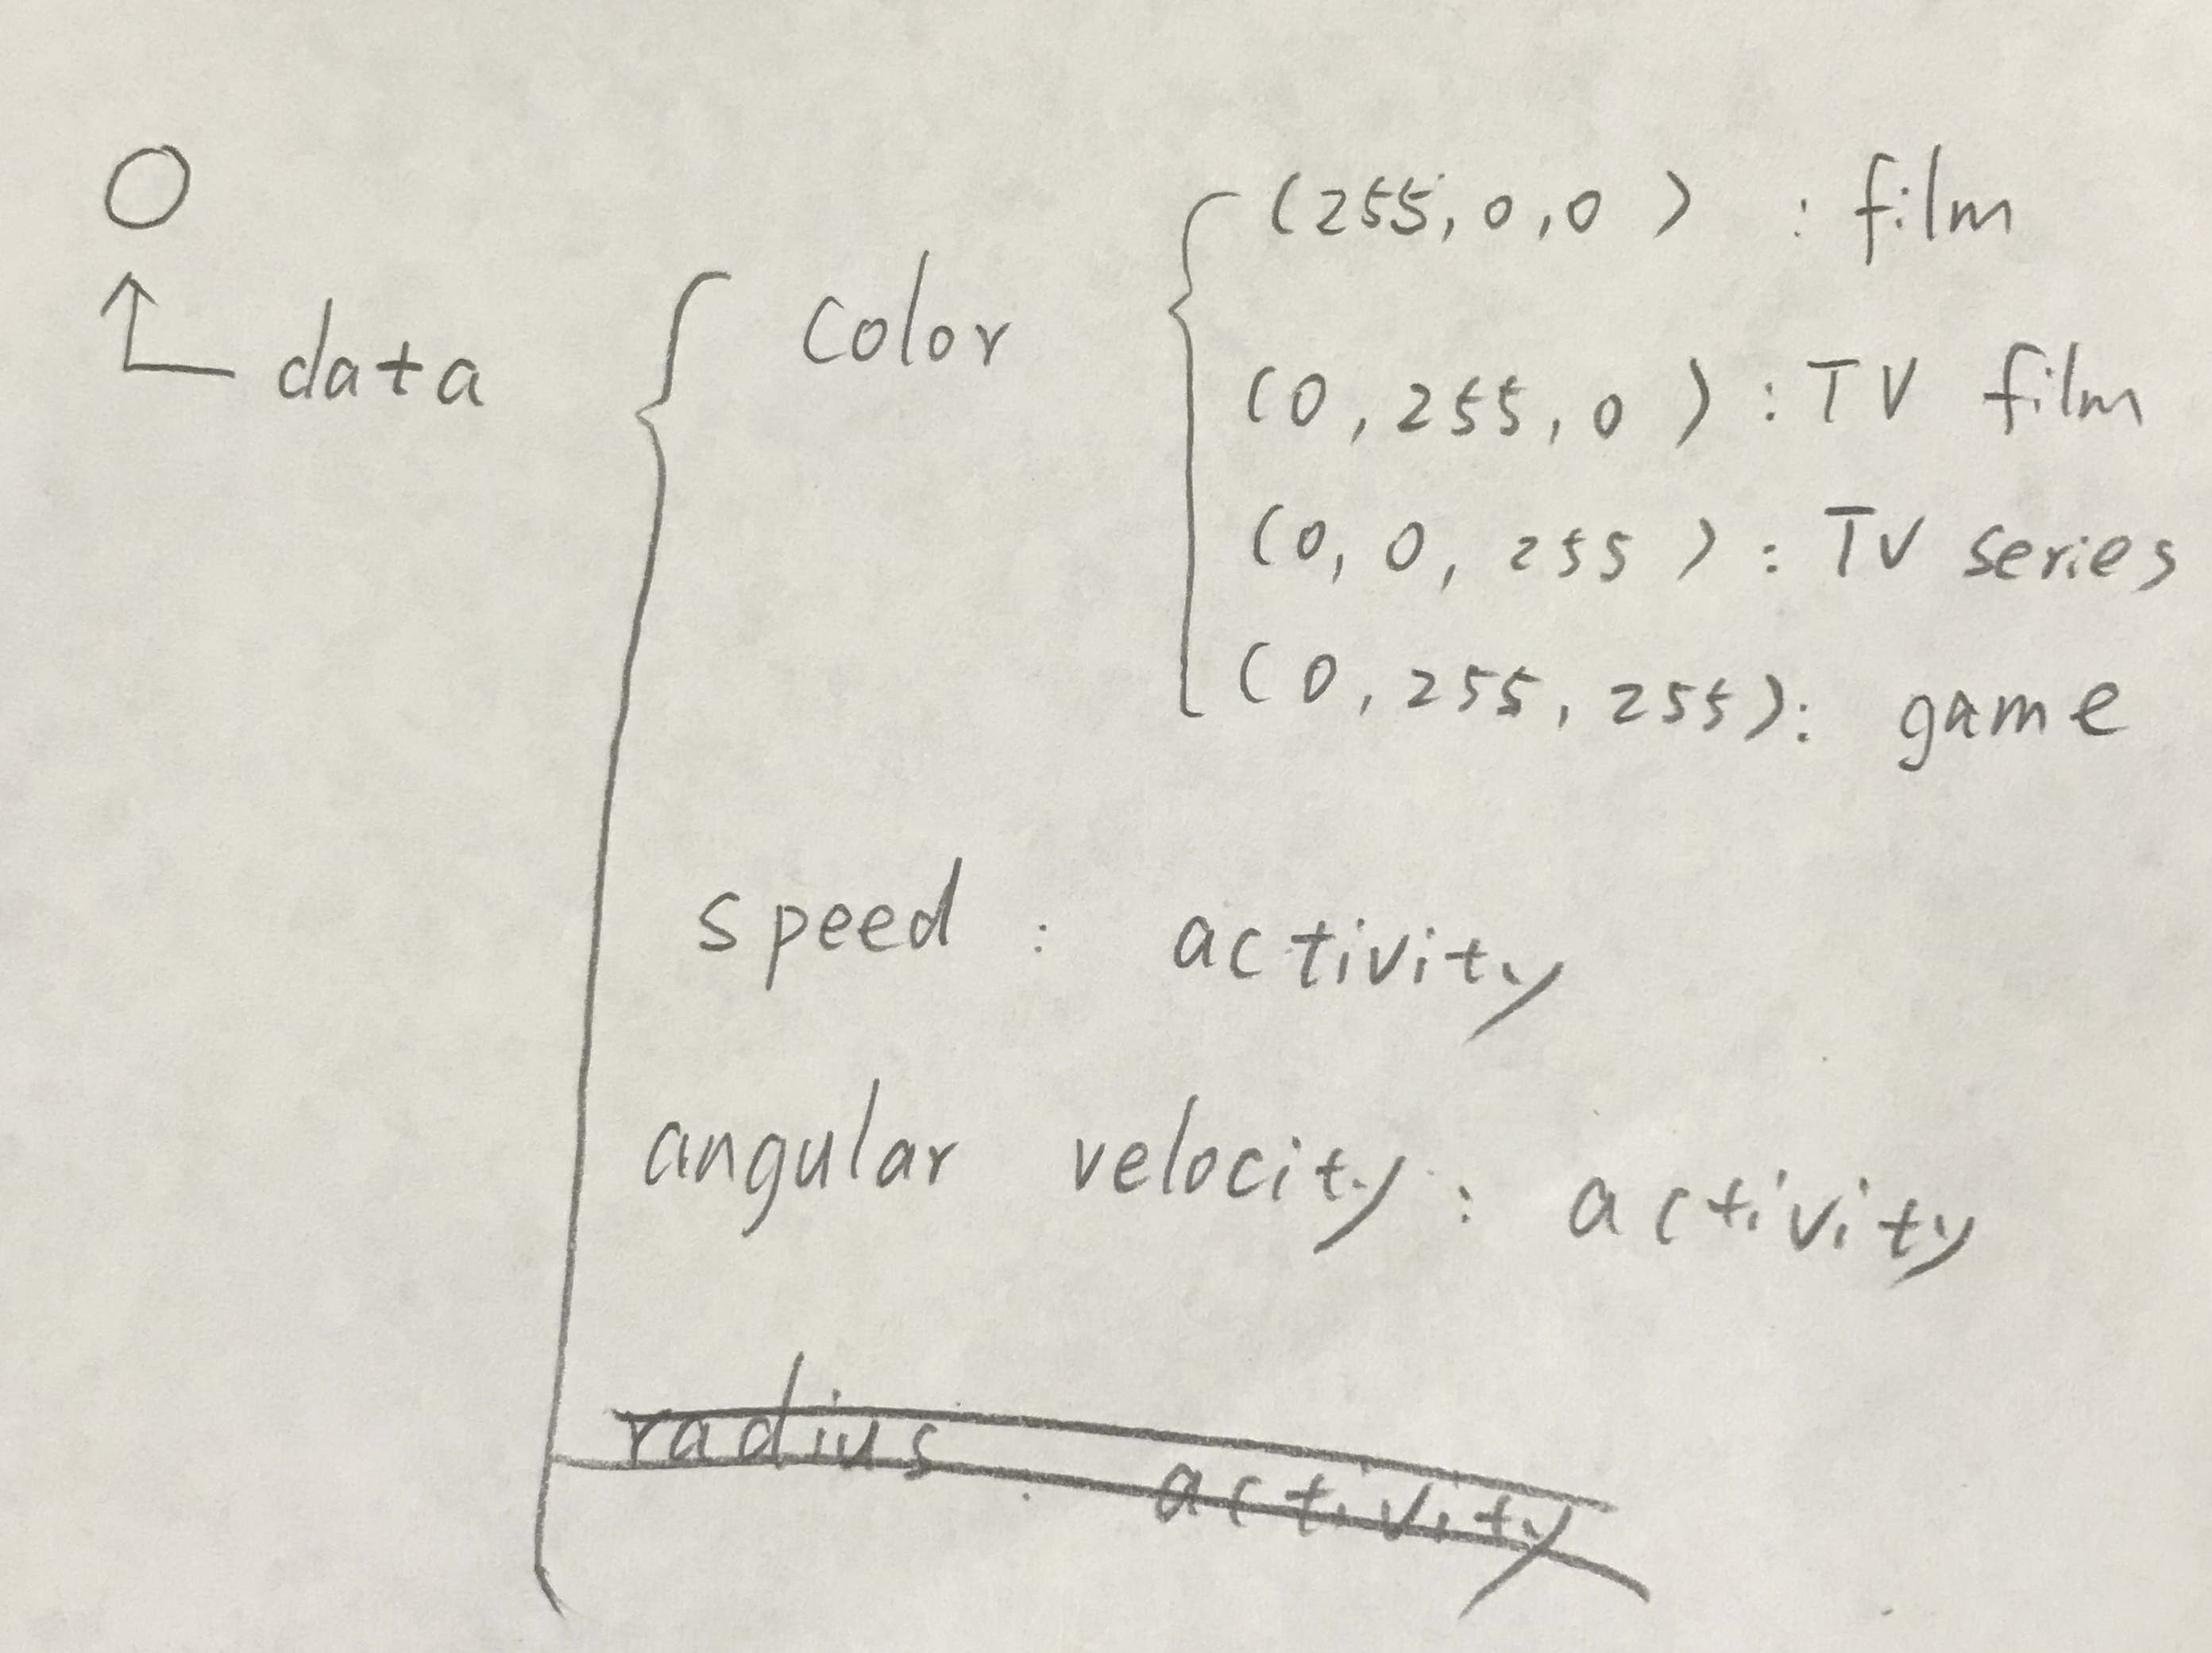 data
color
(255,0,0) : film
(0,255,0) : TV film
(0,0,255) : TV series
(0,255,255): game
speed : activity
angular velocity : activity
radius : activity